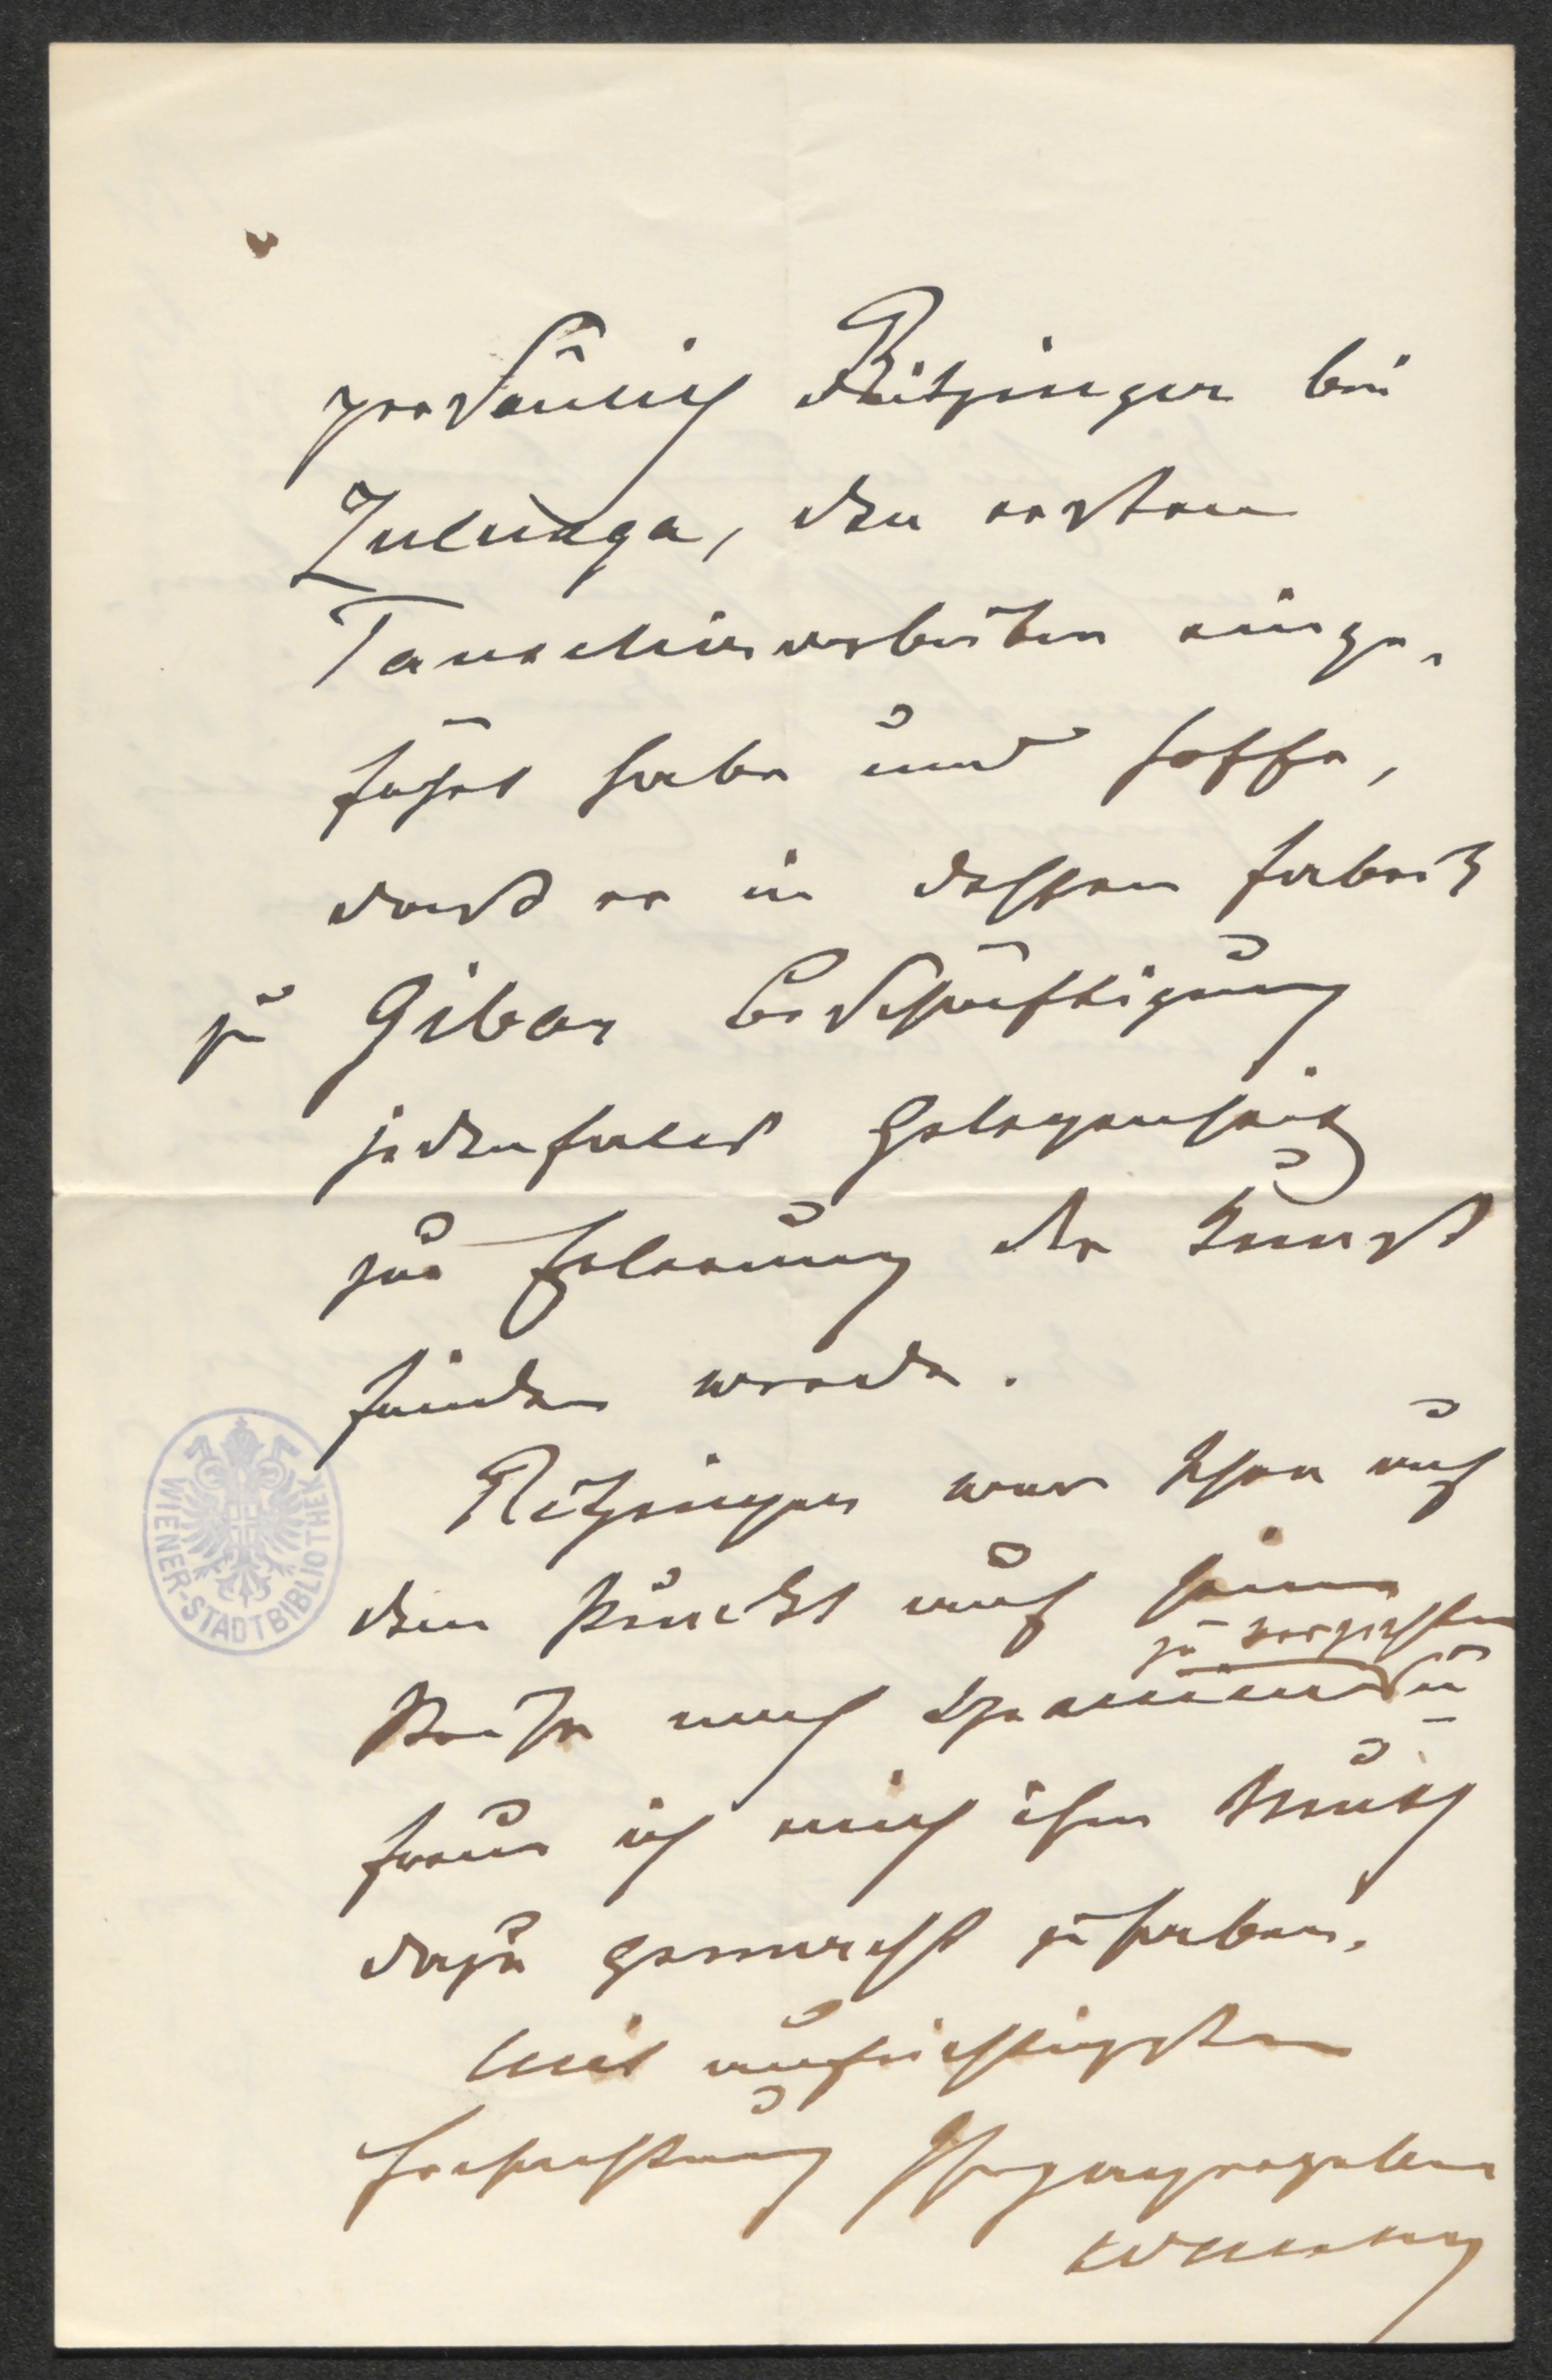 persönlich Ritzinger bei
Zuluaga, den ersten
Tauschierarbeiten einge-
führt habe und hoffe,
dass er in dessen Fabrik
zu Eibar Beschäftigung
jedenfalls Gelegenheit
zur Erlernung der Kunst
finden werde.
Ritzinger war schon auf
dem Punkt auf seine
zu verzichten
Reise nach Spanien u
freue ich mich ihm Muth
dazu gemacht zu haben.
Mit aufrichtigster
Hochachtung Ihr ganz ergebener
WIENER-STADTBIBLIOTHEK